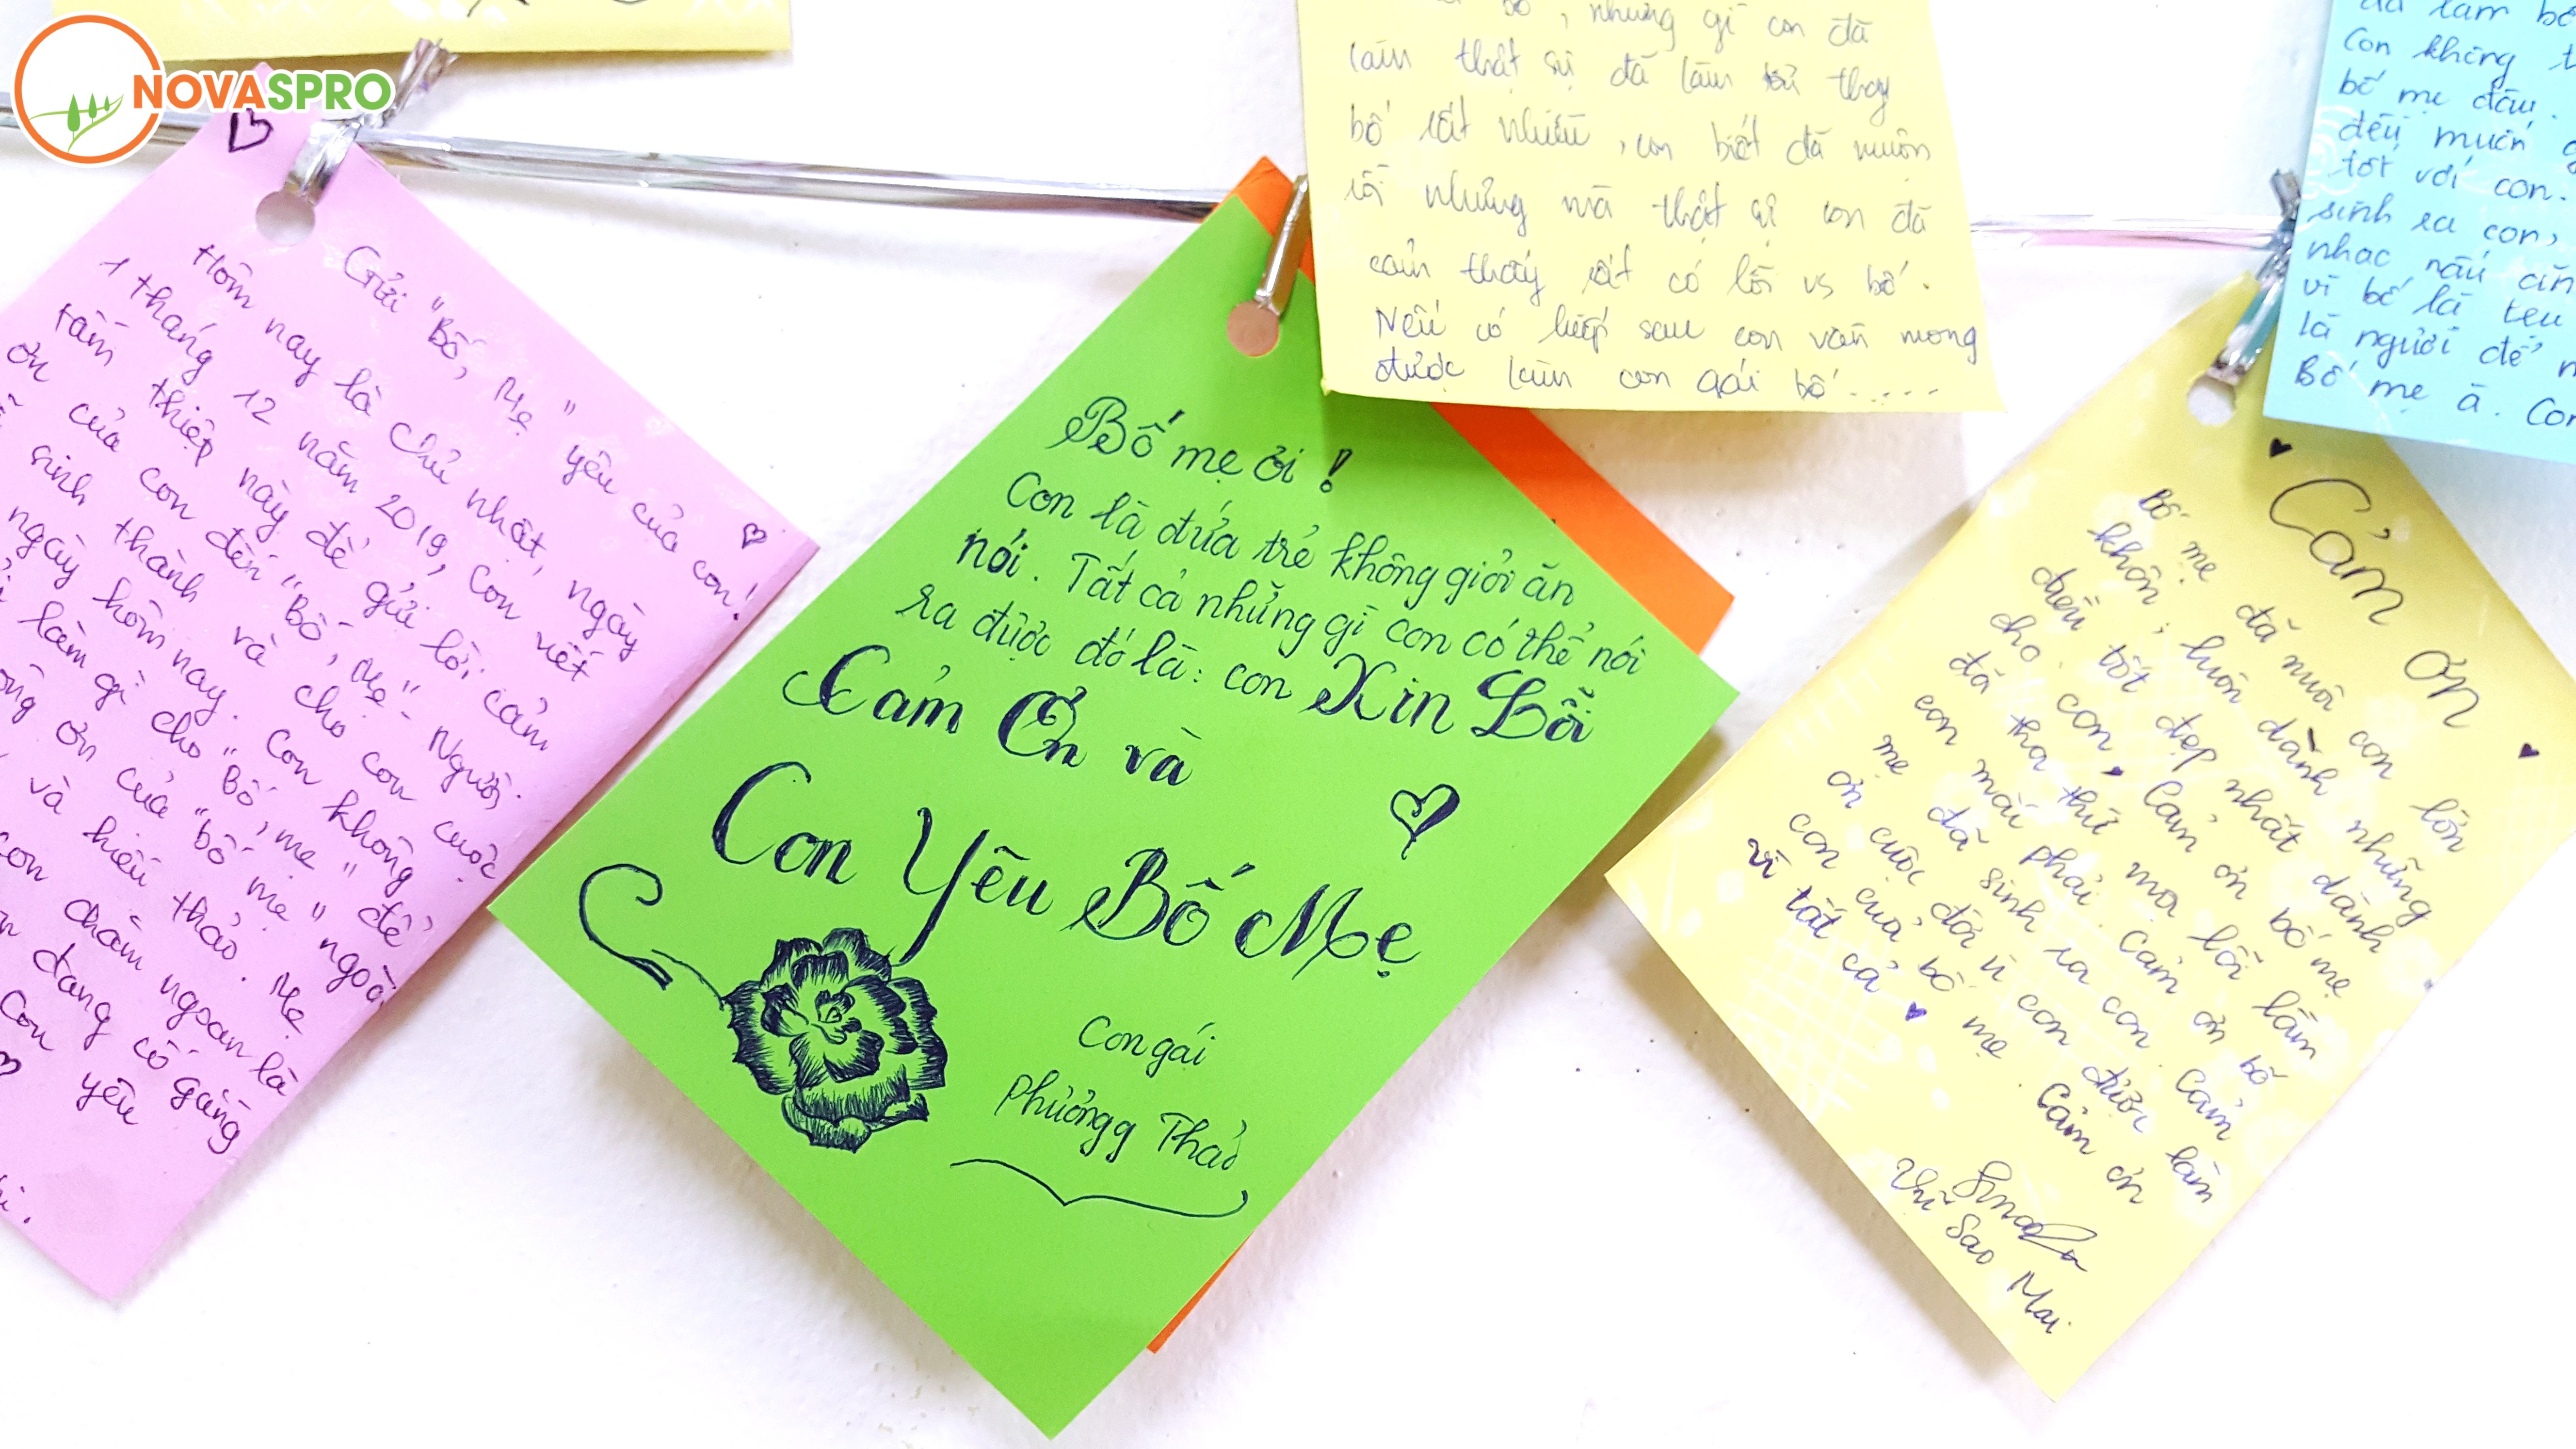 NOVASPRO
Gửi "Bố, Mẹ" yêu của con!
Hôm nay là Chủ nhật, ngày
1 tháng 12 năm 2019, con viết
tấm thiệp này để gửi lời cảm
ơn của con đến "Bố, Mẹ" - Người
sinh thành và cho con cuộc
ngày hôm nay. Con không
làm gì cho "Bố, mẹ" để
ơn của "bố mẹ" ngoài
và hiếu thảo. Mẹ
con chăm ngoan là
đang cố gắng
Con yêu
Bố mẹ ơi!
Con là đứa trẻ không giỏi ăn
nói. Tất cả những gì con có thể nói
ra được đó là: con Xin Lỗi
Cảm Ơn và
Con Yêu Bố Mẹ
Con gái
Phươngg Thảo
bố, những gì con đã
làm thật sự đã làm thay
bố rất nhiều, con biết đã muộn
rồi nhưng mà thật sự con đã
cảm thấy rất có lỗi vs bố.
Nếu có kiếp sau con vẫn mong
được làm con gái bố.....
Cảm ơn
Bố mẹ đã nuôi con lớn
khôn, luôn dành những
điều tốt đẹp nhất dành
cho con. Cảm ơn bố mẹ
đã tha thứ mọi lỗi lầm
con mắc phải. Cảm ơn bố
mẹ đã sinh ra con. Cảm
ơn cuộc đời vì con được làm
con của bố mẹ. Cảm ơn
vì tất cả
Vũ Sao Mai
đã làm bố
Con không
bố mẹ đâu.
đều muốn
tốt với con.
sinh ra con,
nhọc
vì bố là
là người để
Bố mẹ à. Con